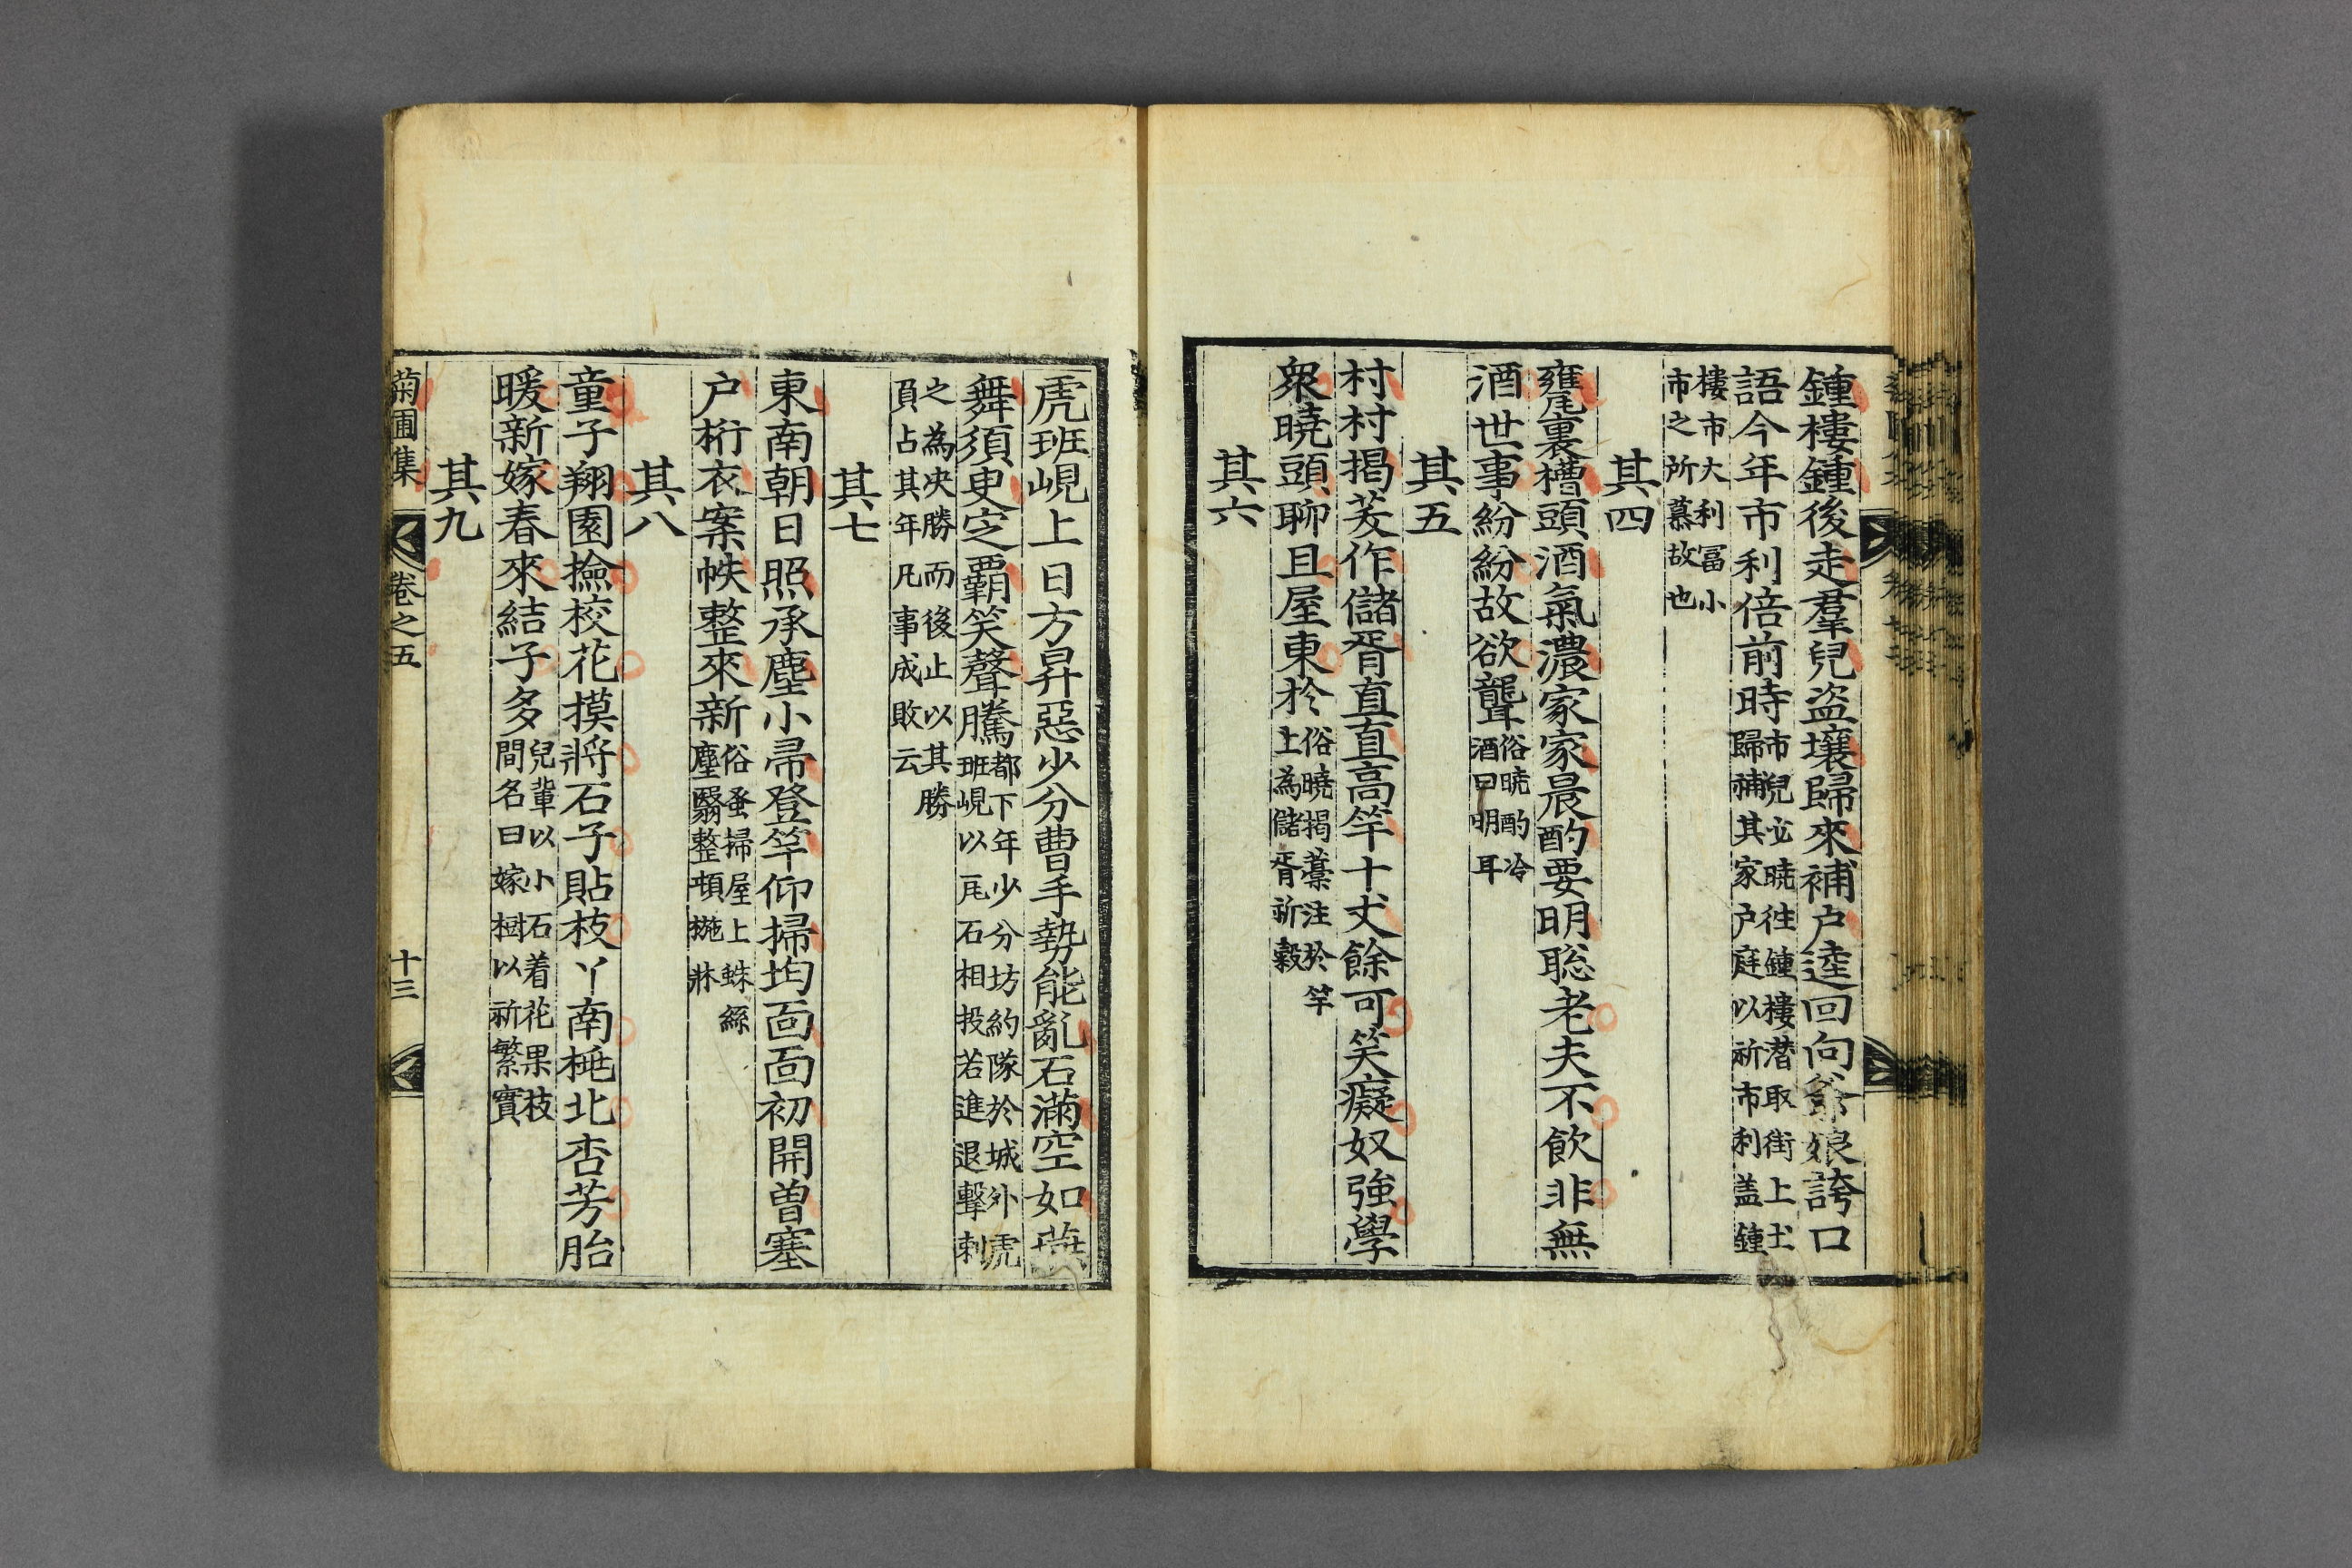 鍾樓鍾後走羣兒盜壤歸來補户逵回向爺娘誇口
語今年市利倍前時市兒必曉徃鍾樓潜取街上土
歸補其家户庭以祈市利盖鍾
樓市大利冨小
市之所慕故也
其四
甕裏槽頭酒氣濃家家晨酌要明聡老夫不飲非無
酒世事紛紛故欲聾俗曉酌冷
酒曰明耳
其五
村村揭芆作儲胥直直高竿十丈餘可笑癡奴強學
衆曉頭聊且屋東於俗曉揭藁注於竿
上為儲胥祈穀
其六
虎班峴上日方昇惡少分曹手勢能亂石滿空如燕
舞須臾㝎覇笑聲騰都下年少分坊約隊於城外虎
班峴以瓦石相投若進退擊刺
之為决勝而後止以其勝
負占其年凡事成敗云
其七
東南朝日照承塵小帚登竿仰掃均面面初開曾塞
户桁衣案帙整來新俗蚤掃屋上蛛絲
塵翳整頓椸牀
其八
童子翔園撿校花摸將石子貼枝丫南椃北杏芳胎
暖新嫁春來結子多兒輩以小石着花果枝
間名曰嫁樹以祈繁實
其九
菊圃集 卷之五 十三